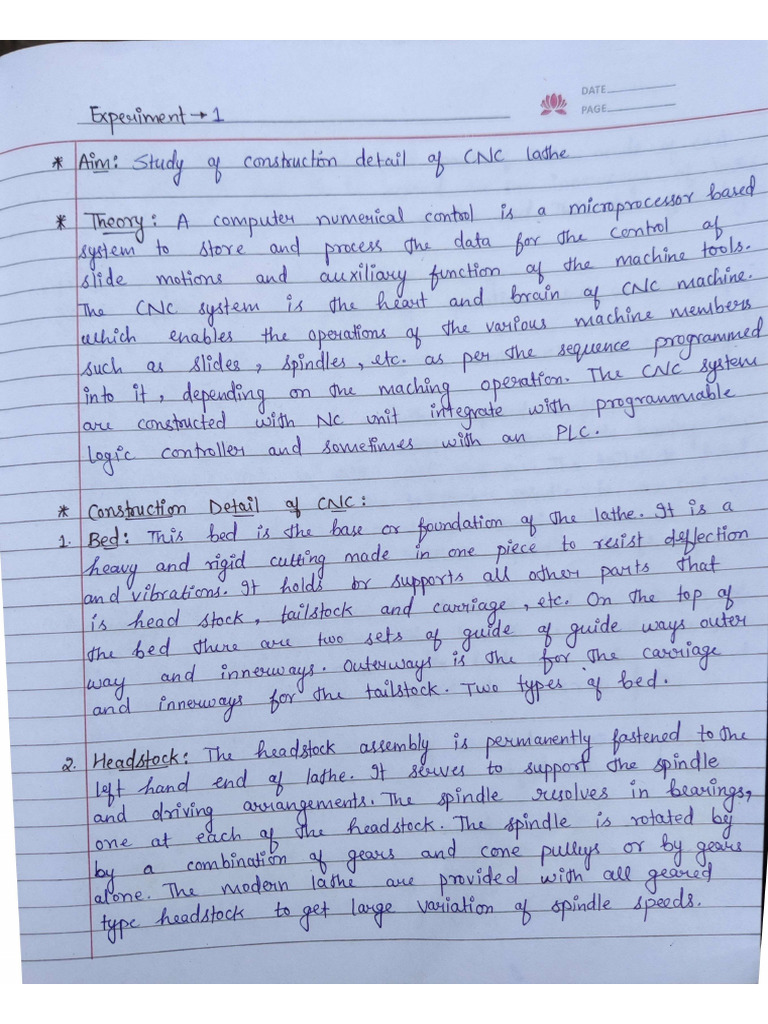 DATE
PAGE
Experiment → 1
* Aim: Study of construction detail of CNC lathe
* Theory: A computer numerical control is a microprocessor based
system to store and process the data for the control of
slide motions and auxiliary function of the machine tools.
The CNC system is the heart and brain of CNC machine.
which enables the operations of the various machine members
such as slides, spindles, etc. as per the sequence programmed
into it, depending on the maching operation. The CNC system
are constructed with NC unit integrate with programmable
logic controller and sometimes with an PLC.
* Construction Detail of CNC:
1. Bed: This bed is the base or foundation of the lathe. It is a
heavy and rigid cutting made in one piece to resist deflection
and vibrations. It holds or supports all other parts that
is head stock, tailstock and carriage, etc. On the top of
the bed there are two sets of guide of guide ways outer
way and innerways. Outerways is the for the carriage
and innerways for the tailstock. Two types of bed.
2. Headstock: The headstock assembly is permanently fastened to the
left hand end of lathe. It serves to support the spindle
and driving arrangements. The spindle resolves in bearings,
one at each of the headstock. The spindle is rotated by
by a combination of gears and cone pulleys or by gears
alone. The modern lathe are provided with all geared
type headstock to get large variation of spindle speeds.